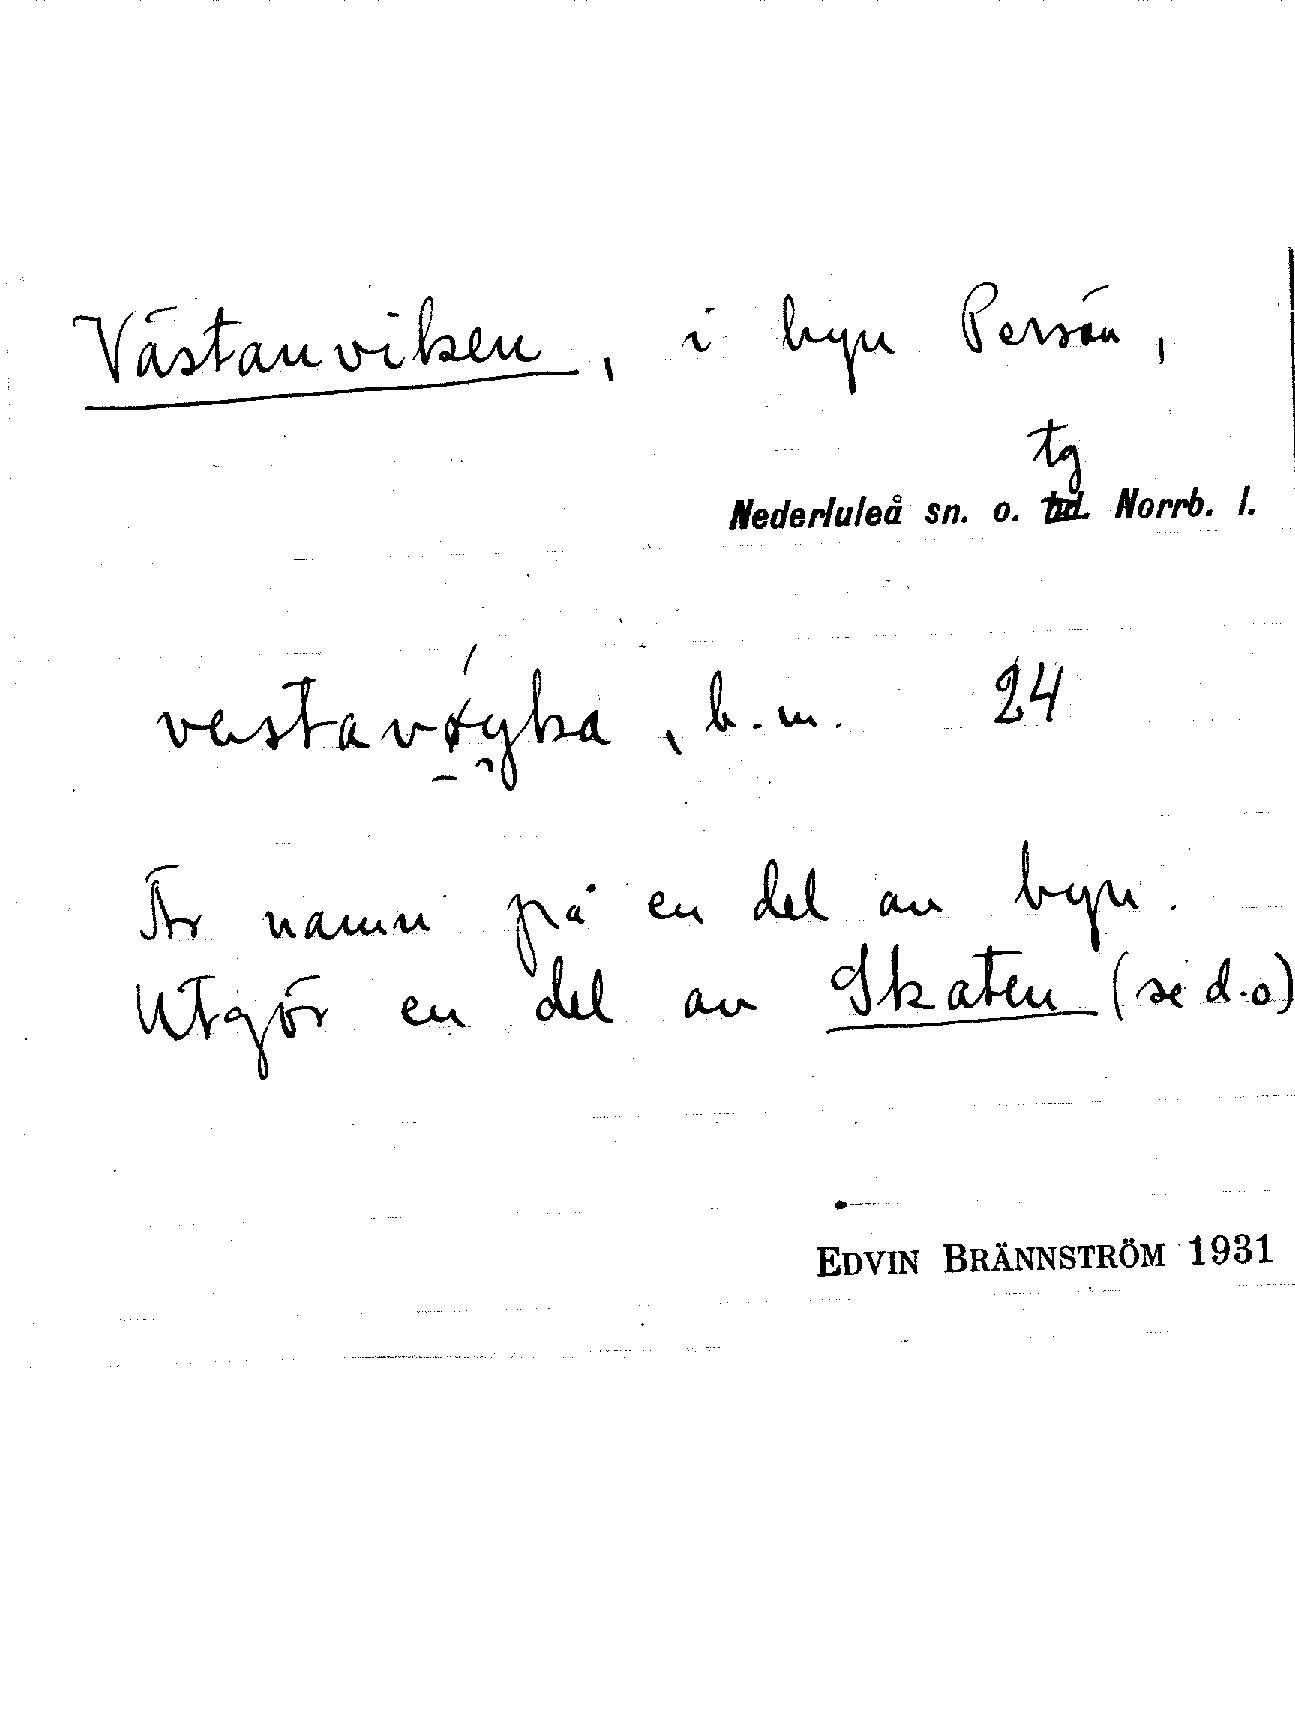 Västanviken, i byn Persön,
tg
Nederluleå sn. o. hd. Norrb. l.
vestavöyka, b.m. 24
Är namn på en del av byn.
Utgör en del av Skaten (se d.o)
EDVIN BRÄNNSTRÖM 1931